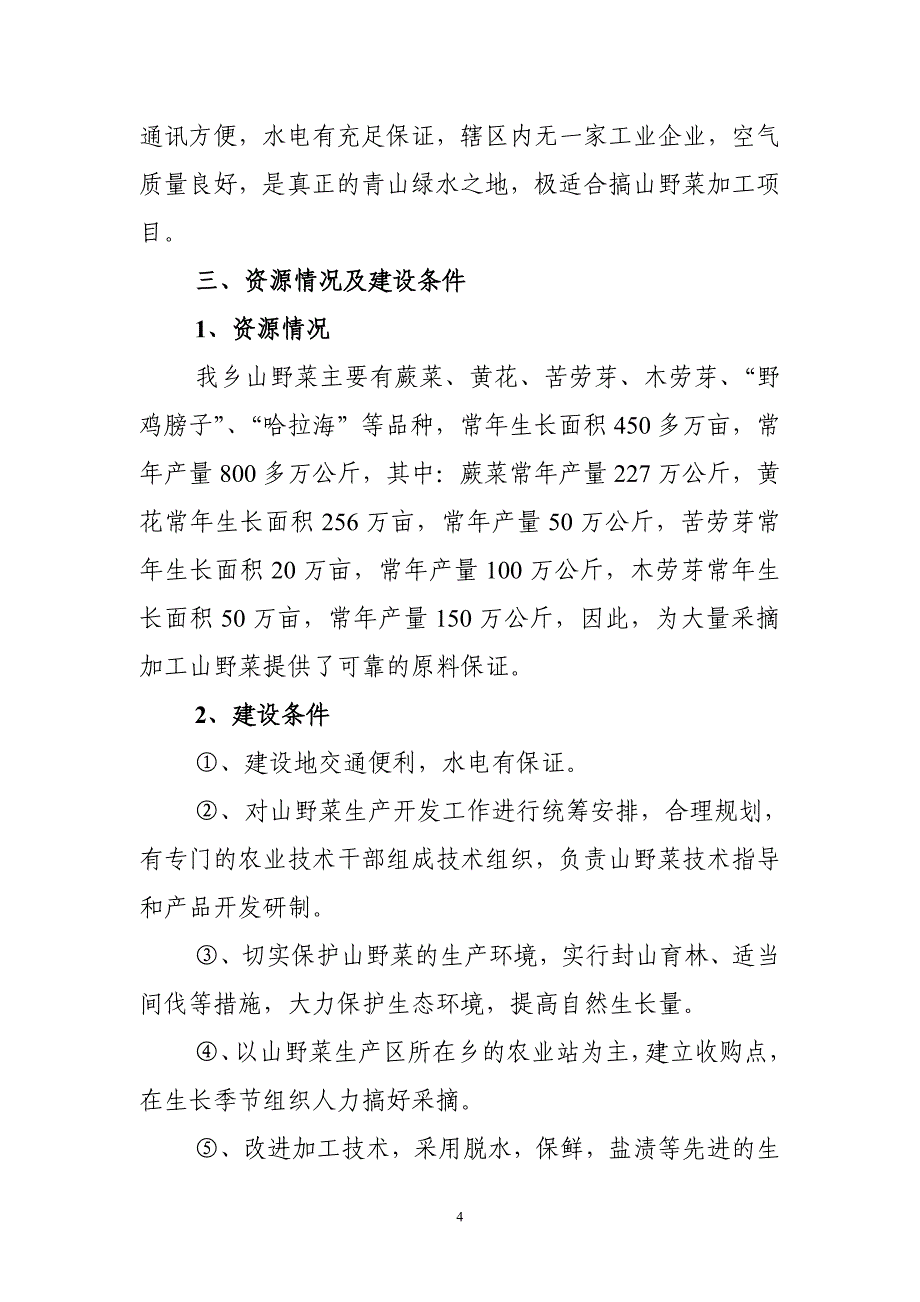 通讯方便，水电有充足保证，辖区内无一家工业企业，空气
质量良好，是真正的青山绿水之地，极适合搞山野菜加工项
目。
三、资源情况及建设条件
1、资源情况
我乡山野菜主要有蕨菜、黄花、苦劳芽、木劳芽、“野
鸡膀子”、“哈拉海”等品种，常年生长面积 450 多万亩，常
年产量 800 多万公斤，其中：蕨菜常年产量 227 万公斤，黄
花常年生长面积 256 万亩，常年产量 50 万公斤，苦劳芽常
年生长面积 20 万亩，常年产量 100 万公斤，木劳芽常年生
长面积 50 万亩，常年产量 150 万公斤，因此，为大量采摘
加工山野菜提供了可靠的原料保证。
2、建设条件
①、建设地交通便利，水电有保证。
②、对山野菜生产开发工作进行统筹安排，合理规划，
有专门的农业技术干部组成技术组织，负责山野菜技术指导
和产品开发研制。
③、切实保护山野菜的生产环境，实行封山育林、适当
间伐等措施，大力保护生态环境，提高自然生长量。
④、以山野菜生产区所在乡的农业站为主，建立收购点，
在生长季节组织人力搞好采摘。
⑤、改进加工技术，采用脱水，保鲜，盐渍等先进的生
4